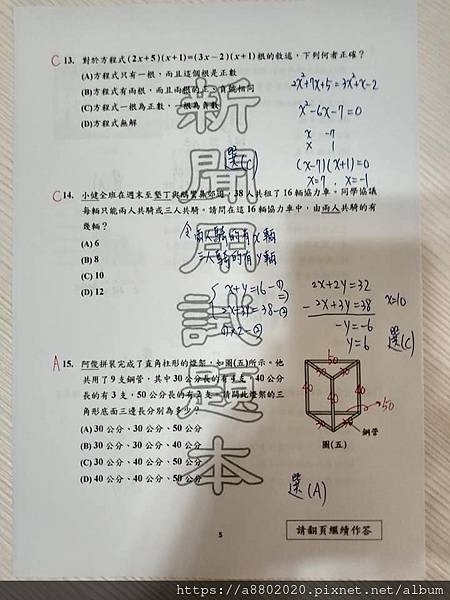 C 13. 對於方程式(2x+5)(x+1)=(3x−2)(x+1)根的敘述，下列何者正確？
(A)方程式只有一根，而且這個根是正數
(B)方程式有兩根，而且兩根的正、負號相同
(C)方程式一根為正數，一根為負數
(D)方程式無解
2x²+7x+5=3x²+x−2
x²−6x−7=0
x −7
x 1
(x−7)(x+1)=0
x=7, x=−1
選(C)
C 14. 小健全班在週末至墾丁與鵝鑾鼻郊遊，38人共租了16輛協力車。同學協議
每輛只能兩人共騎或三人共騎。請問在這16輛協力車中，由兩人共騎的有
幾輛？
(A) 6
(B) 8
(C) 10
(D) 12
令兩人騎的有x輛
三人騎的有y輛
x+y=16−①
2x+3y=38−②
①×2−②
2x+2y=32
−2x+3y=38
−y=−6
y=6
x=10
選(C)
A 15. 阿俊拼裝完成了直角柱形的燈架，如圖(五)所示。他
共用了9支鋼管，其中30公分長的有4支，40公分
長的有3支，50公分長的有2支。請問此燈架的三
角形底面三邊長分別為多少？
(A) 30公分、30公分、50公分
(B) 30公分、30公分、40公分
(C) 30公分、40公分、50公分
(D) 40公分、40公分、50公分
50
30
30
40
40
40
50
鋼管
圖(五)
選(A)
新聞用試題本
5
請翻頁繼續作答
https://a8802020.pixnet.net/album